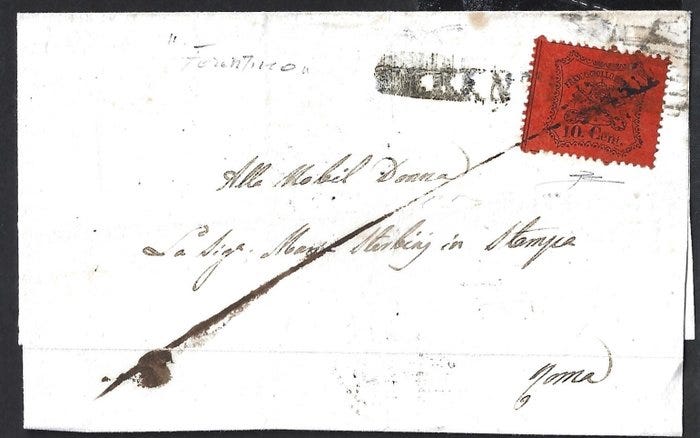 " Ferentino "
FRANCO BOLLO
10 Cent.
Alla Nobil Donna
La Sig.ra Sterbinj in Stampa
Roma